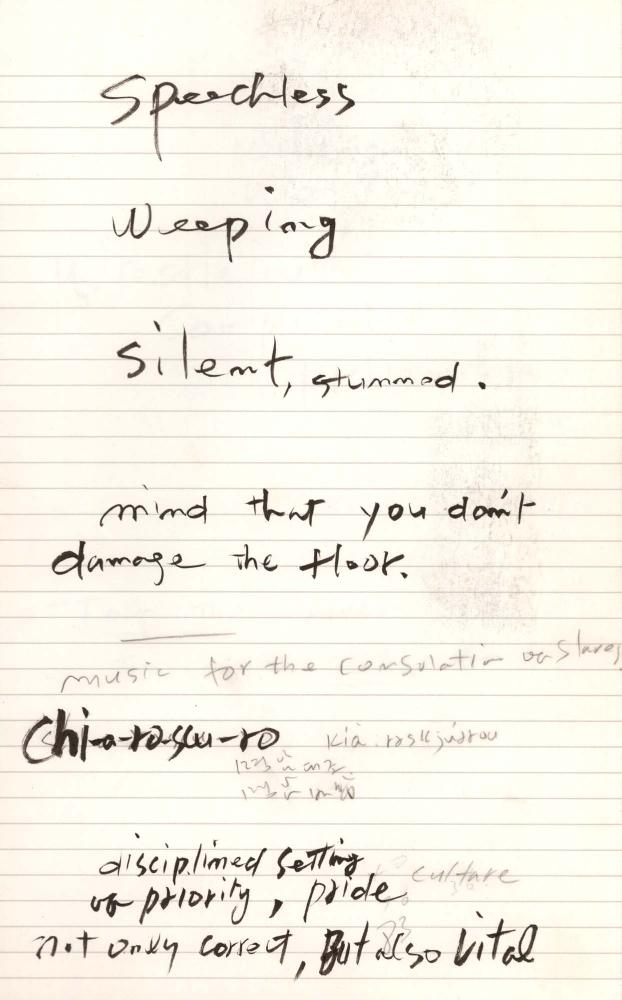 Speechless
Weeping
Silent, stunned.
mind that you don't
damage the floor.
music for the consolation of slaves
Chi-a-ro-scu-ro
disciplined setting culture
of priority, pride
not only correct, But also Vital